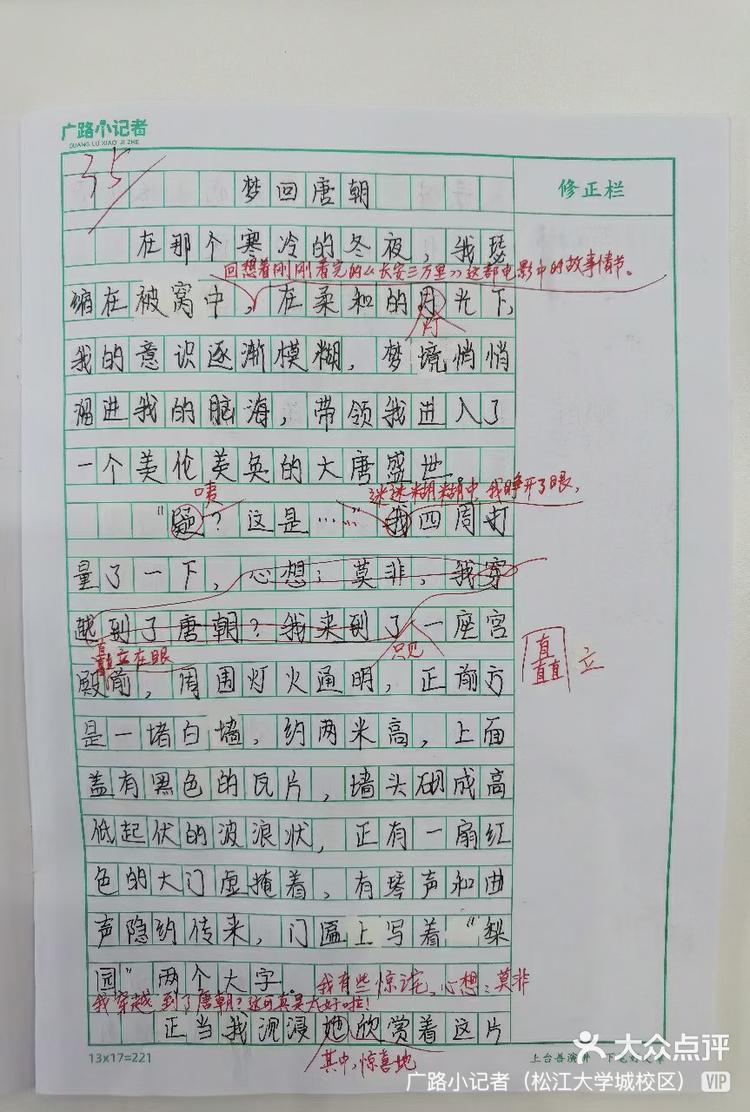 广路小记者
GUANG LU XIAO JI ZHE
35
梦回唐朝
修正栏
在那个寒冷的冬夜，我蜷
回想着刚刚看完的《长安三万里》这部电影中的故事情节。
缩在被窝中，在柔和的月光下，
灯
我的意识逐渐模糊，梦境悄悄
溜进我的脑海，带领我进入了
一个美伦美奂的大唐盛世。
咦
迷迷糊糊中，我睁开了眼，
“疑？这是……”我四周打
量了一下，心想：莫非，我穿
越到了唐朝？我来到了一座宫
矗立在眼
只见
直
直直
立
殿前，周围灯火通明，正前方
是一堵白墙，约两米高，上面
盖有黑色的瓦片，墙头砌成高
低起伏的波浪状，正有一扇红
色的大门虚掩着，有琴声和曲
声隐约传来，门匾上写着“梨
园”两个大字。
我有些惊诧，心想：莫非
我穿越到了唐朝？这可真是太好啦！
正当我沉浸她欣赏着这片
其中，惊喜地
13x17=221
上台善演讲
大众点评
广路小记者（松江大学城校区）VIP